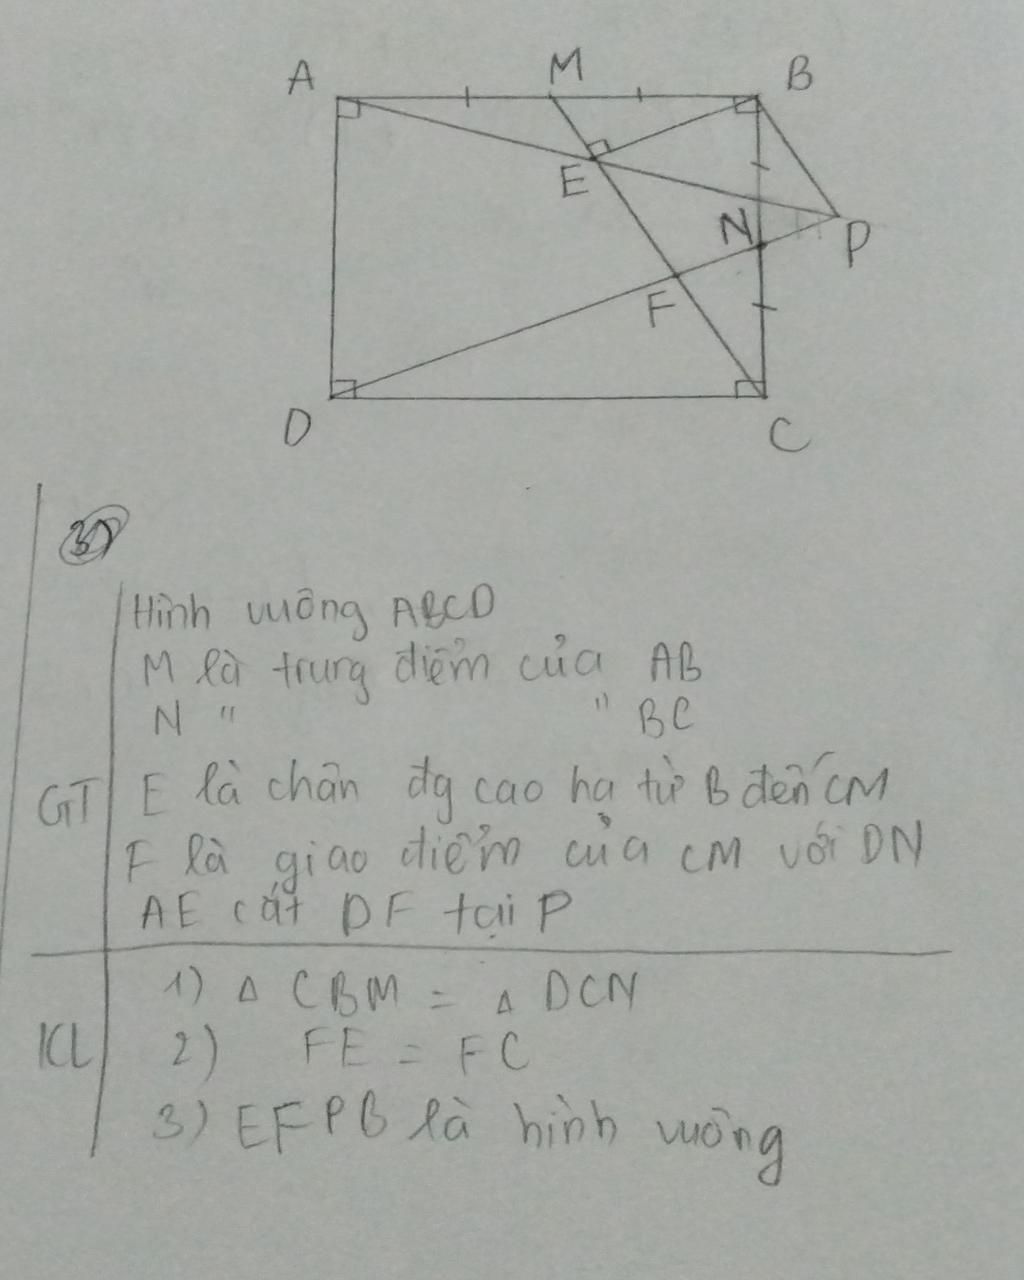 A M B
E N P
F
D C
3)
Hình vuông ABCD
M là trung điểm của AB
N " " BC
GT E là chân đg cao hạ từ B đến CM
F là giao điểm của CM với DN
AE cắt DF tại P
1) Δ CBM = Δ DCN
KL 2) FE = FC
3) EFPB là hình vuông